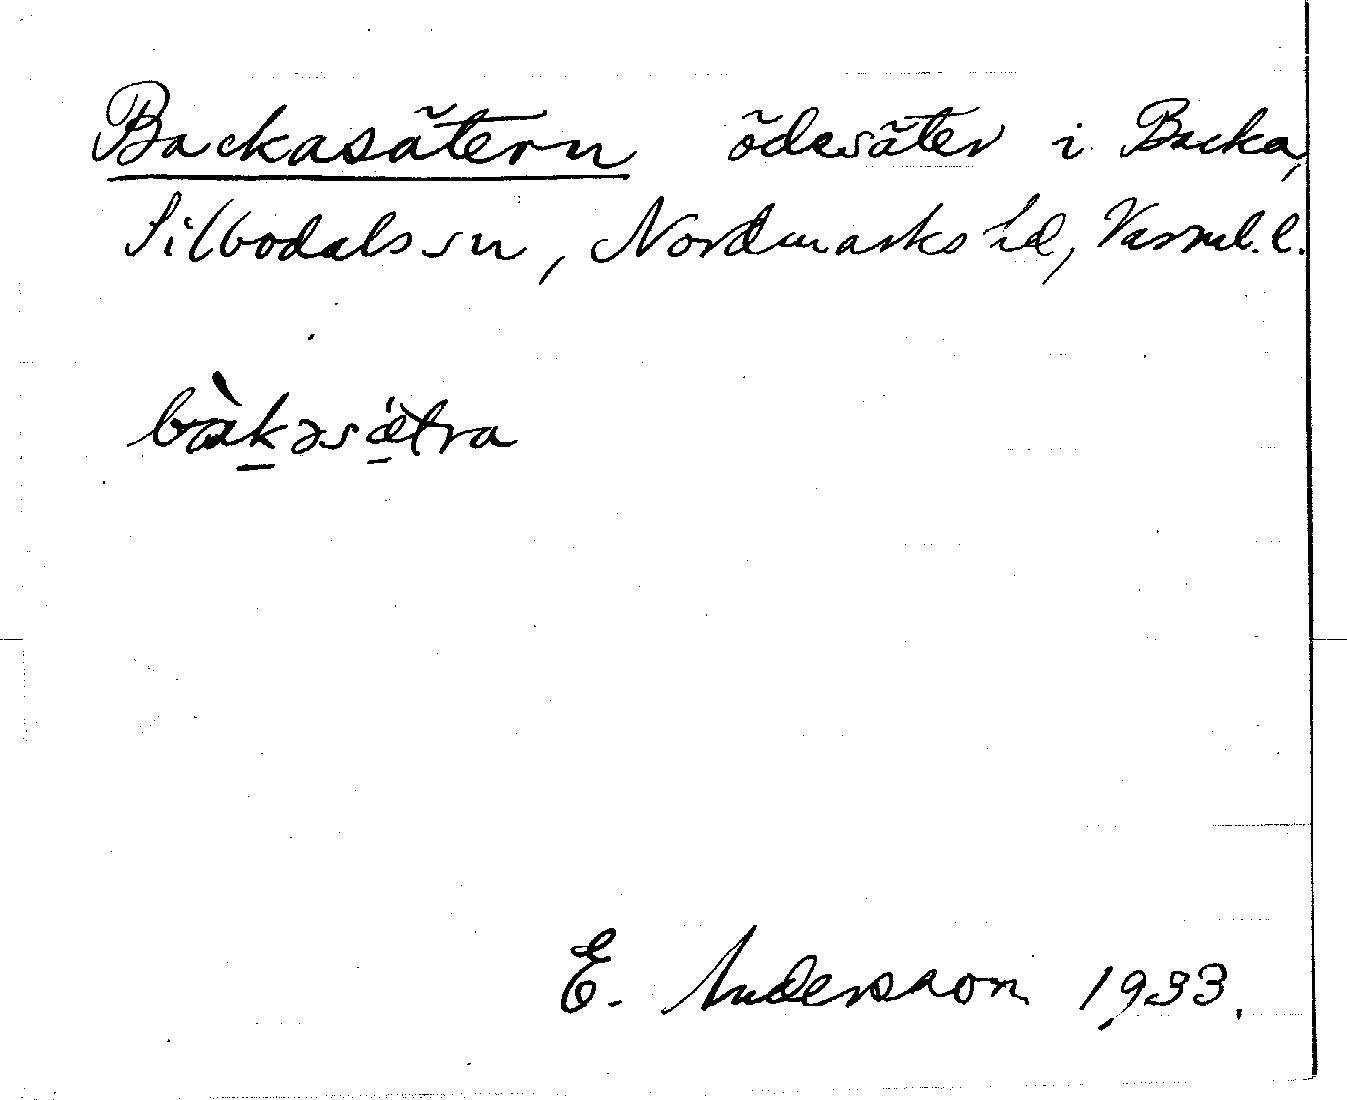 Backasätern ödesäter i Backa,
Silbodals sn, Nordmarks hd, Värml. l.
bàk̠əsǽ̠tra
E. Andersson 1933.